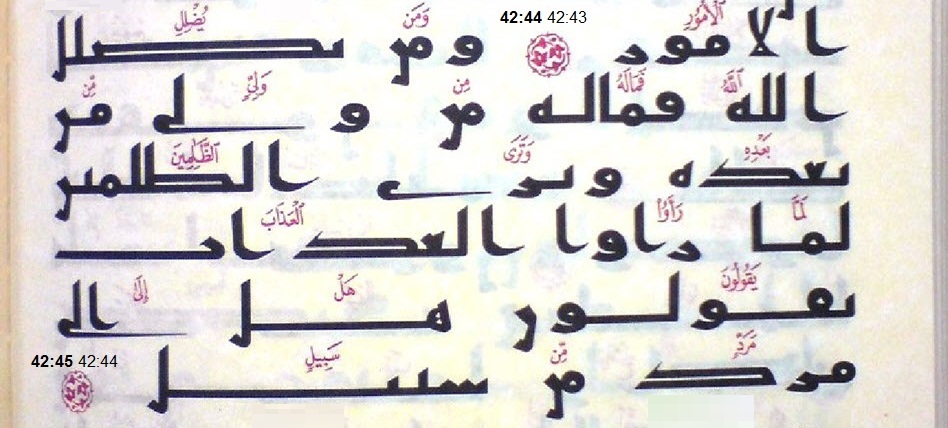 42:44 42:43
ٱلْأُمُورِ وَمَن يُضْلِلِ
الامور ومن يضلل
ٱللَّهُ فَمَالَهُ مِن وَلِيٍّ مِّن
الله فماله من ولي من
بَعْدِهِ وَتَرَى ٱلظَّٰلِمِينَ
بعده وترى الظلمين
لَمَّا رَأَوُا ٱلْعَذَابَ
لما راوا العذاب
يَقُولُونَ هَلْ إِلَىٰ
يقولون هل الى
مَرَدٍّ مِّن سَبِيلٍ
مرد من سبيل
42:45 42:44